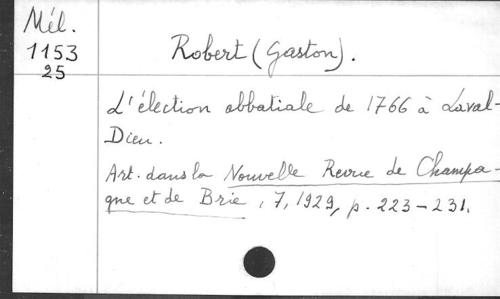 Mél.
1153
25
Robert (Gaston).
L'élection abbatiale de 1766 à Laval-
Dieu.
Art. dans la Nouvelle Revue de Champa-
gne et de Brie, 7, 1929, p. 223-231.